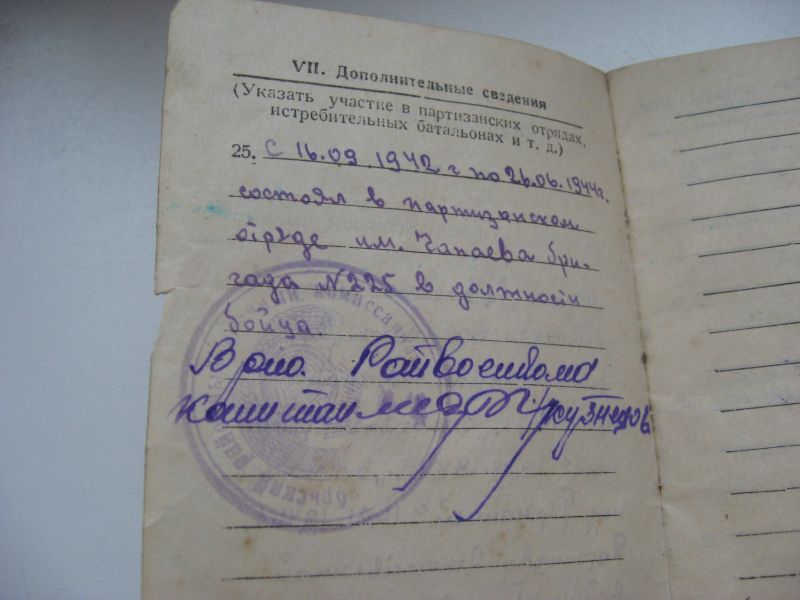 VII. Дополнительные сведения
(Указать участие в партизанских отрядах,
истребительных батальонах и т. д.)
25. С 16.09.1942 г по 26.06.1944г.
состоял в партизанском
отряде им. Чапаева бри-
гада N 225 в должности
бойца.
Врио. Райвоенкома
капитан м/с Кузнецов